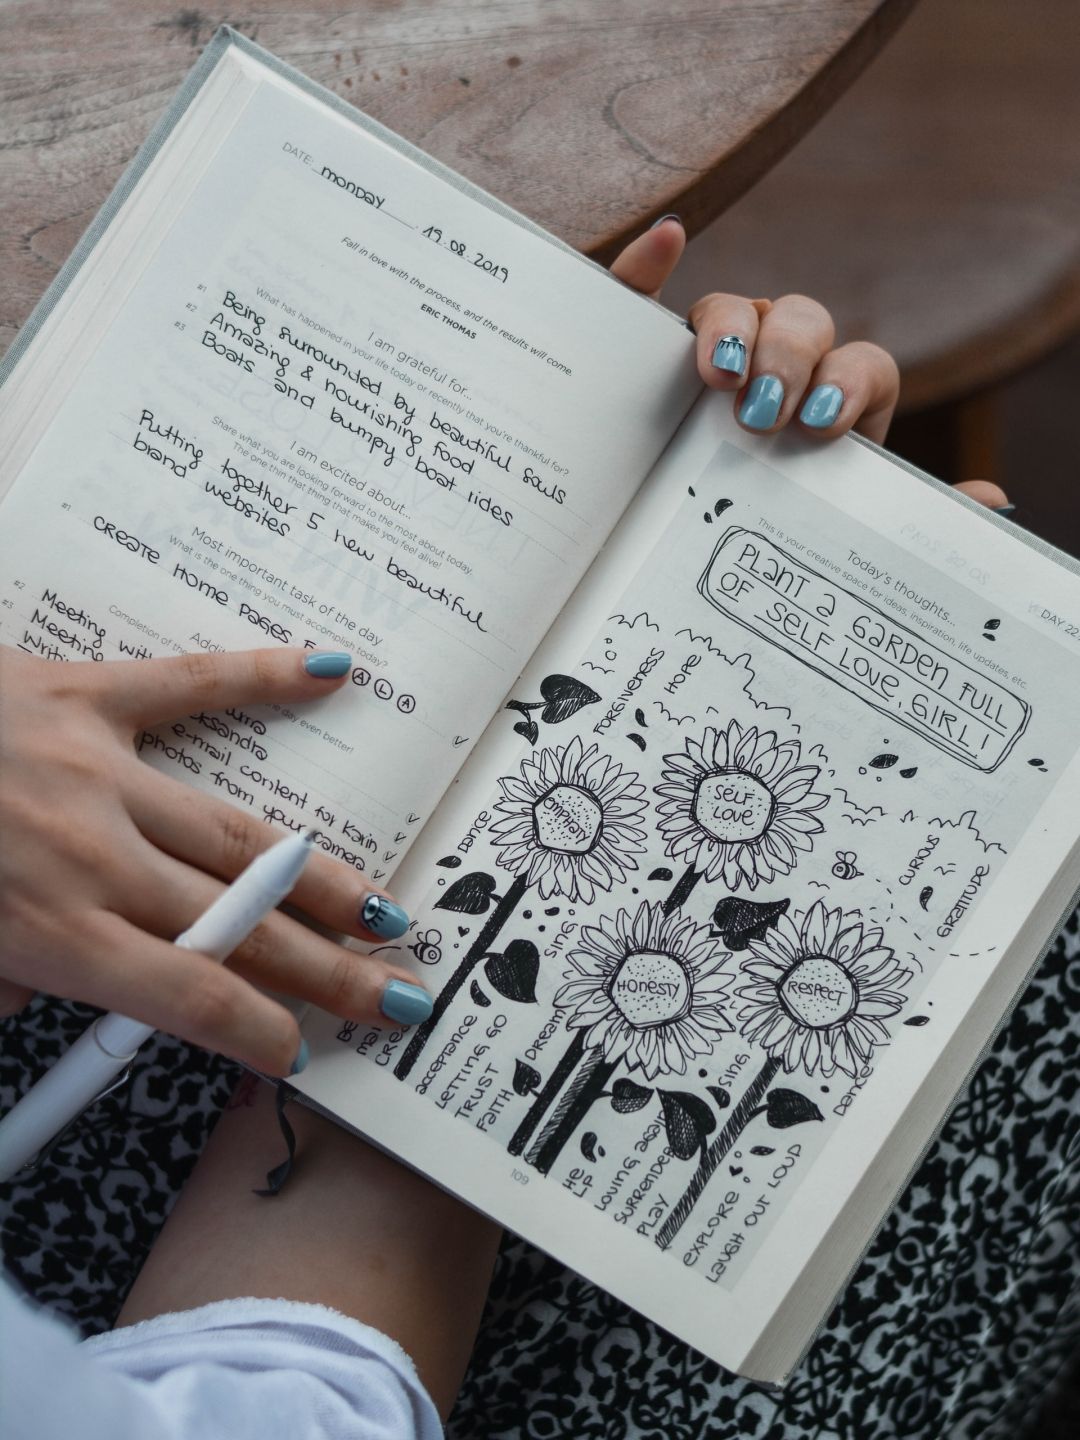 DATE: monday 19.08.2019
Fall in love with the process, and the results will come.
ERIC THOMAS
I am grateful for...
What has happened in your life today or recently that you're thankful for?
#1 Being surrounded by beautiful souls
#2 Amazing & nourishing food
#3 Boats and bumpy boat rides
I am excited about...
Share what you are looking forward to the most about today.
The one thin that thing that makes you feel alive!
Putting together 5 new beautiful
brand websites
Most important task of the day
What is the one thing you must accomplish today?
#1 CREATE HOME PAGES
A L A
Completion of the
the day even better!
#2 Meeting with
#3 Meeting
e-mail content for Karin
photos from your camera
20.08.2019
DAY 22
Today's thoughts...
This is your creative space for ideas, inspiration, life updates, etc.
PLANT A GARDEN FULL
OF SELF LOVE, GIRL!
FORGIVENESS
HOPE
EMPHATY
SELF
LOVE
DANCE
CURIOUS
GRATITUDE
SING
HONESTY
RESPECT
DREAM
SING
DANCE
acceptance
LETTING GO
TRUST
FAITH
HE
LP
LOVING again
SURRENDER
PLAY
EXPLORE
LAUGH OUT LOUD
109